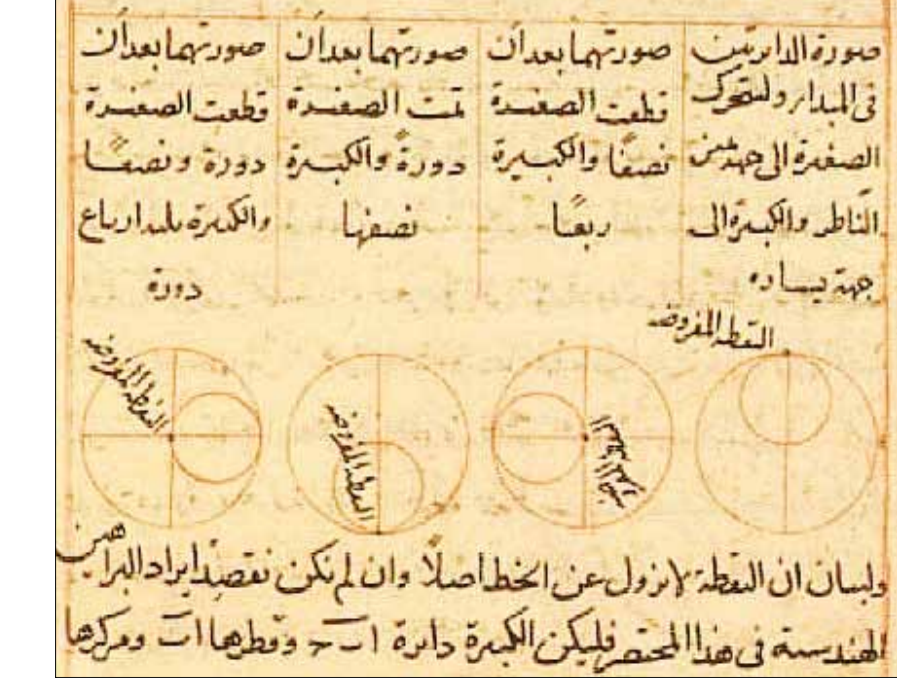 صورة الدايرتين
في المبدا ولتتحرك
الصغيرة الى جهة يمين
الناظر والكبيرة الى
جهة يساره
صورتهما بعد ان
قطعت الصغيرة
نصفًا والكبيرة
ربعًا
صورتهما بعد ان
تمت الصغيرة
دورةً والكبيرة
نصفها
صورتهما بعد ان
قطعت الصغيرة
دورة ونصفًا
والكبيرة ثلثة ارباع
دورة
النقطة المفروضة
النقطة المفروضة
النقطة المفروضة
ولبيان ان النقطة لا تزول عن الخط اصلًا وان لم نكن نقصد ايراد البراهين
الهندسية في هذا المختصر فليكن الكبيرة دايرة ا ب ج وقطرها ا ب ومركزها